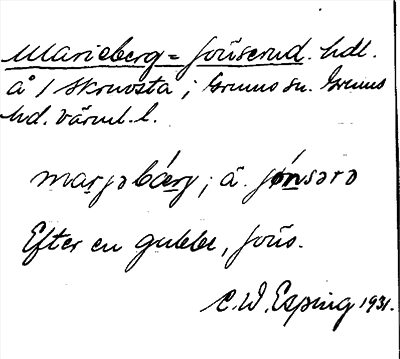 Marieberg = Jonserud. hdl.
å 1 Skruvsta i Grums sn. Grums
hd. Värml. l.
marjabärj; ä. jónsərə
Efter en gubbe, Jons.
C.W. Esping 1931.